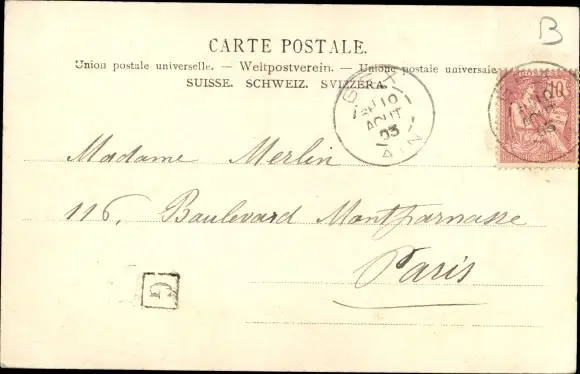 B
CARTE POSTALE.
Union postale universelle. — Weltpostverein. — Unione postale universale
SUISSE. SCHWEIZ. SVIZZERA.
GEX
10
AOUT
03
AIN
10
AOUT
03
Madame Merlin
116, Boulevard Montparnasse
Paris
G